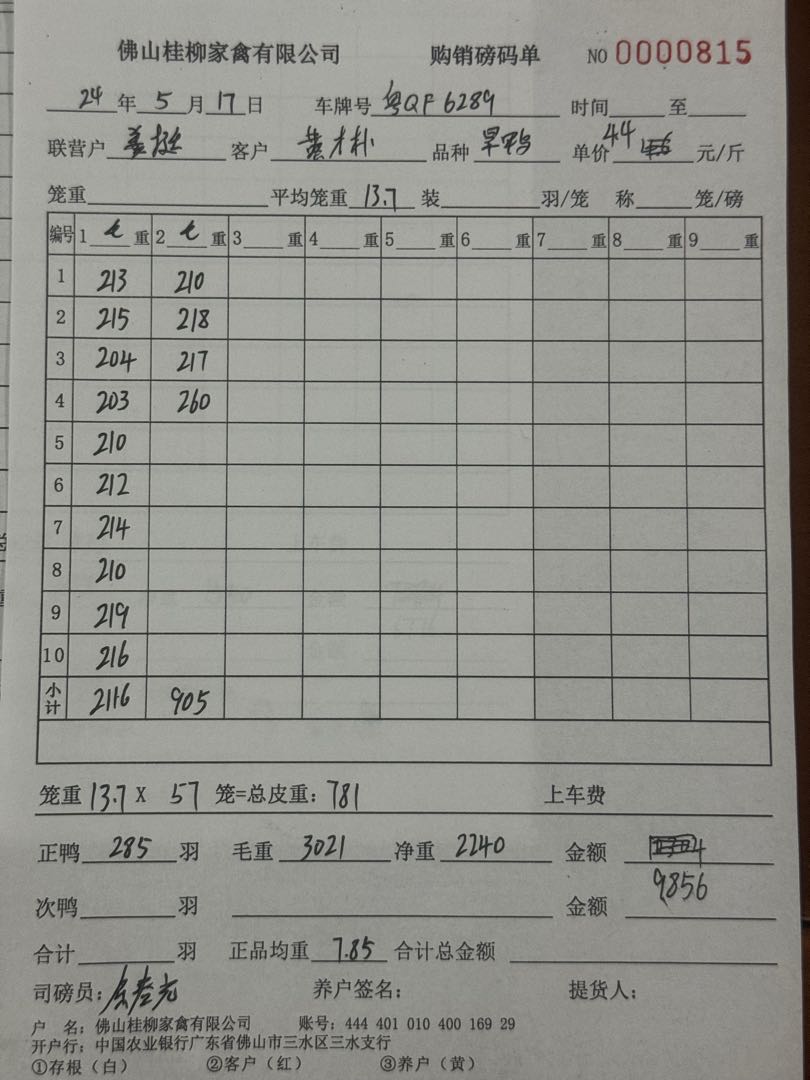 佛山桂柳家禽有限公司 购销磅码单 NO 0000815
24 年 5 月 17 日 车牌号 粤QF6289 时间 至
联营户 客户 黄才朴 品种 旱鸭 单价 44 元/斤
笼重 平均笼重 13.7 装 羽/笼 称 笼/磅
编号 1 七 重 2 七 重 3 重 4 重 5 重 6 重 7 重 8 重 9 重
1 213 210
2 215 218
3 204 217
4 203 260
5 210
6 212
7 214
8 210
9 219
10 216
小计 2116 905
笼重 13.7 X 57 笼=总皮重: 781 上车费
正鸭 285 羽 毛重 3021 净重 2240 金额
次鸭 羽 金额 9856
合计 羽 正品均重 7.85 合计总金额
司磅员: 养户签名: 提货人:
户 名: 佛山桂柳家禽有限公司 账号: 444 401 010 400 169 29
开户行: 中国农业银行广东省佛山市三水区三水支行
①存根（白） ②客户（红） ③养户（黄）